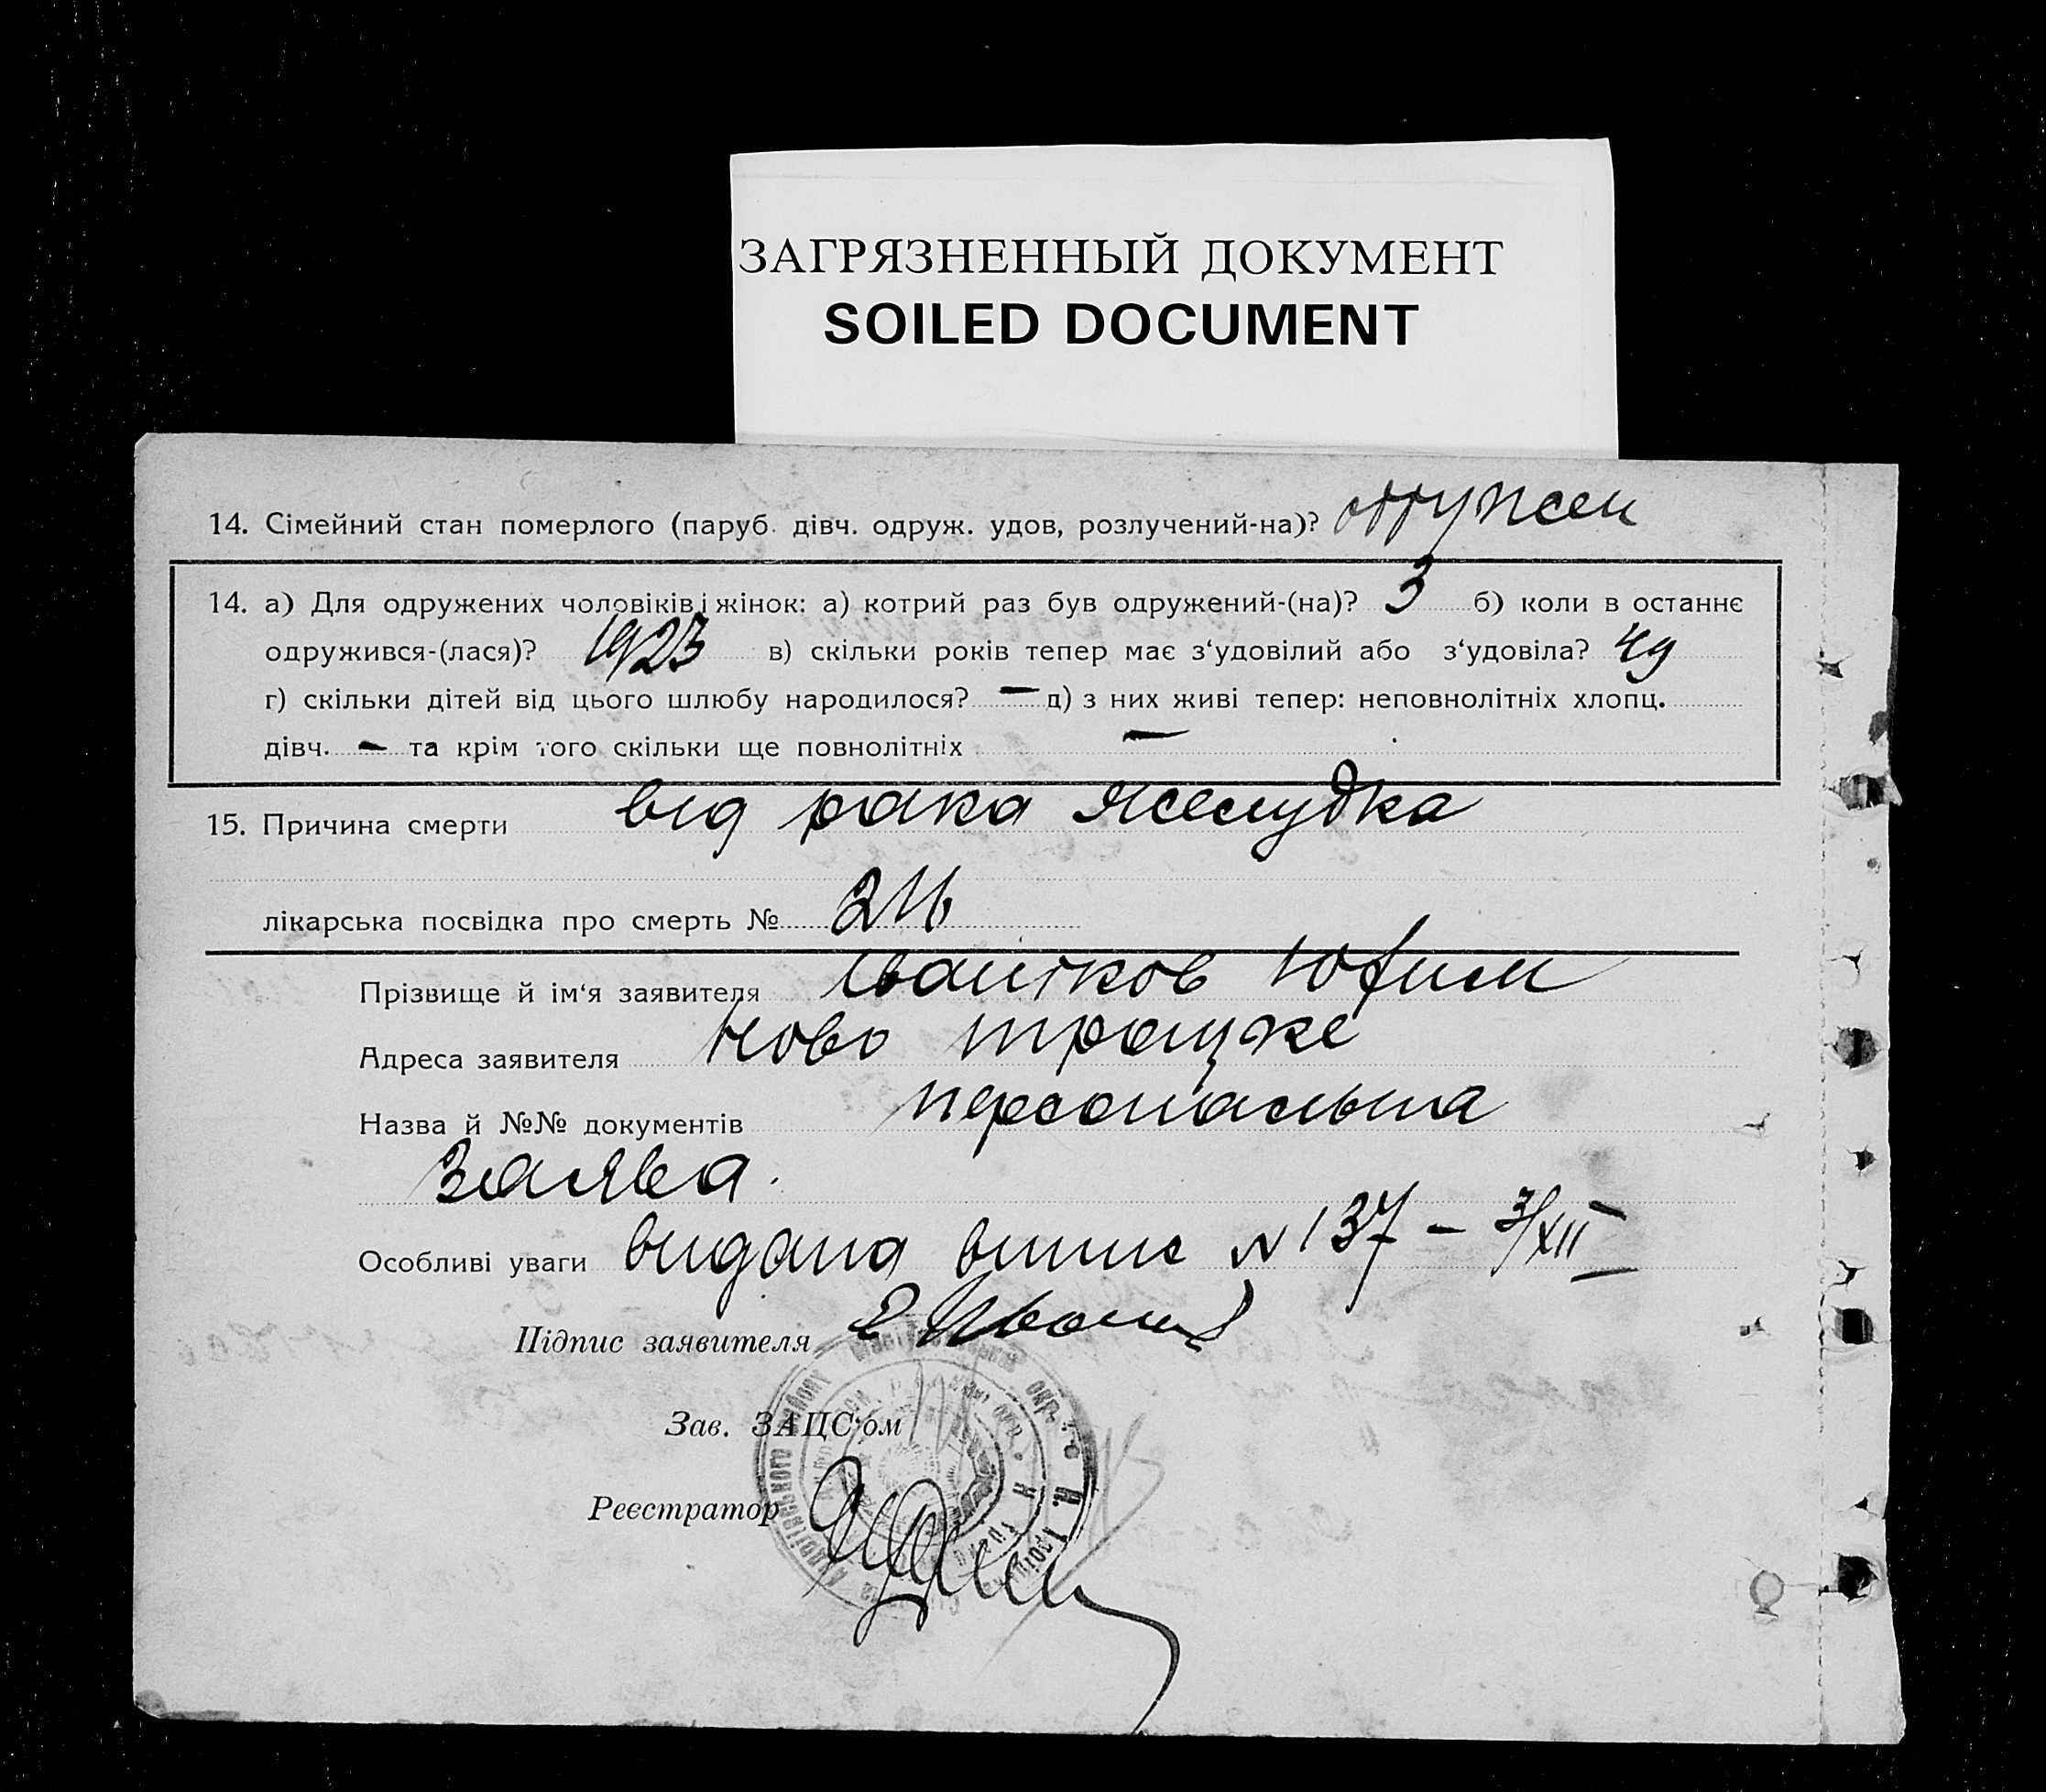 ЗАГРЯЗНЕННЫЙ ДОКУМЕНТ
SOILED DOCUMENT
14. Сімейний стан померлого (паруб. дівч. одруж. удов, розлучений-на)? одружен
14. а) Для одружених чоловіків і жінок: а) котрий раз був одружений-(на)? 3 б) коли в останнє
одружився-(лася)? 1923 в) скільки років тепер має з‘удовілий або з‘удовіла? 49
г) скільки дітей від цього шлюбу народилося? — д) з них живі тепер: неповнолітніх хлопц.
дівч. — та крім того скільки ще повнолітніх —
15. Причина смерти від рака желудка
лікарська посвідка про смерть №
Прізвище й ім‘я заявителя Юфим
Адреса заявителя Ново троцке
Назва й №№ документів персональна
заява.
Особливі уваги видана випис N 137 – 3/XII
Підпис заявителя
Зав. ЗАЦС‘ом
Реєстратор